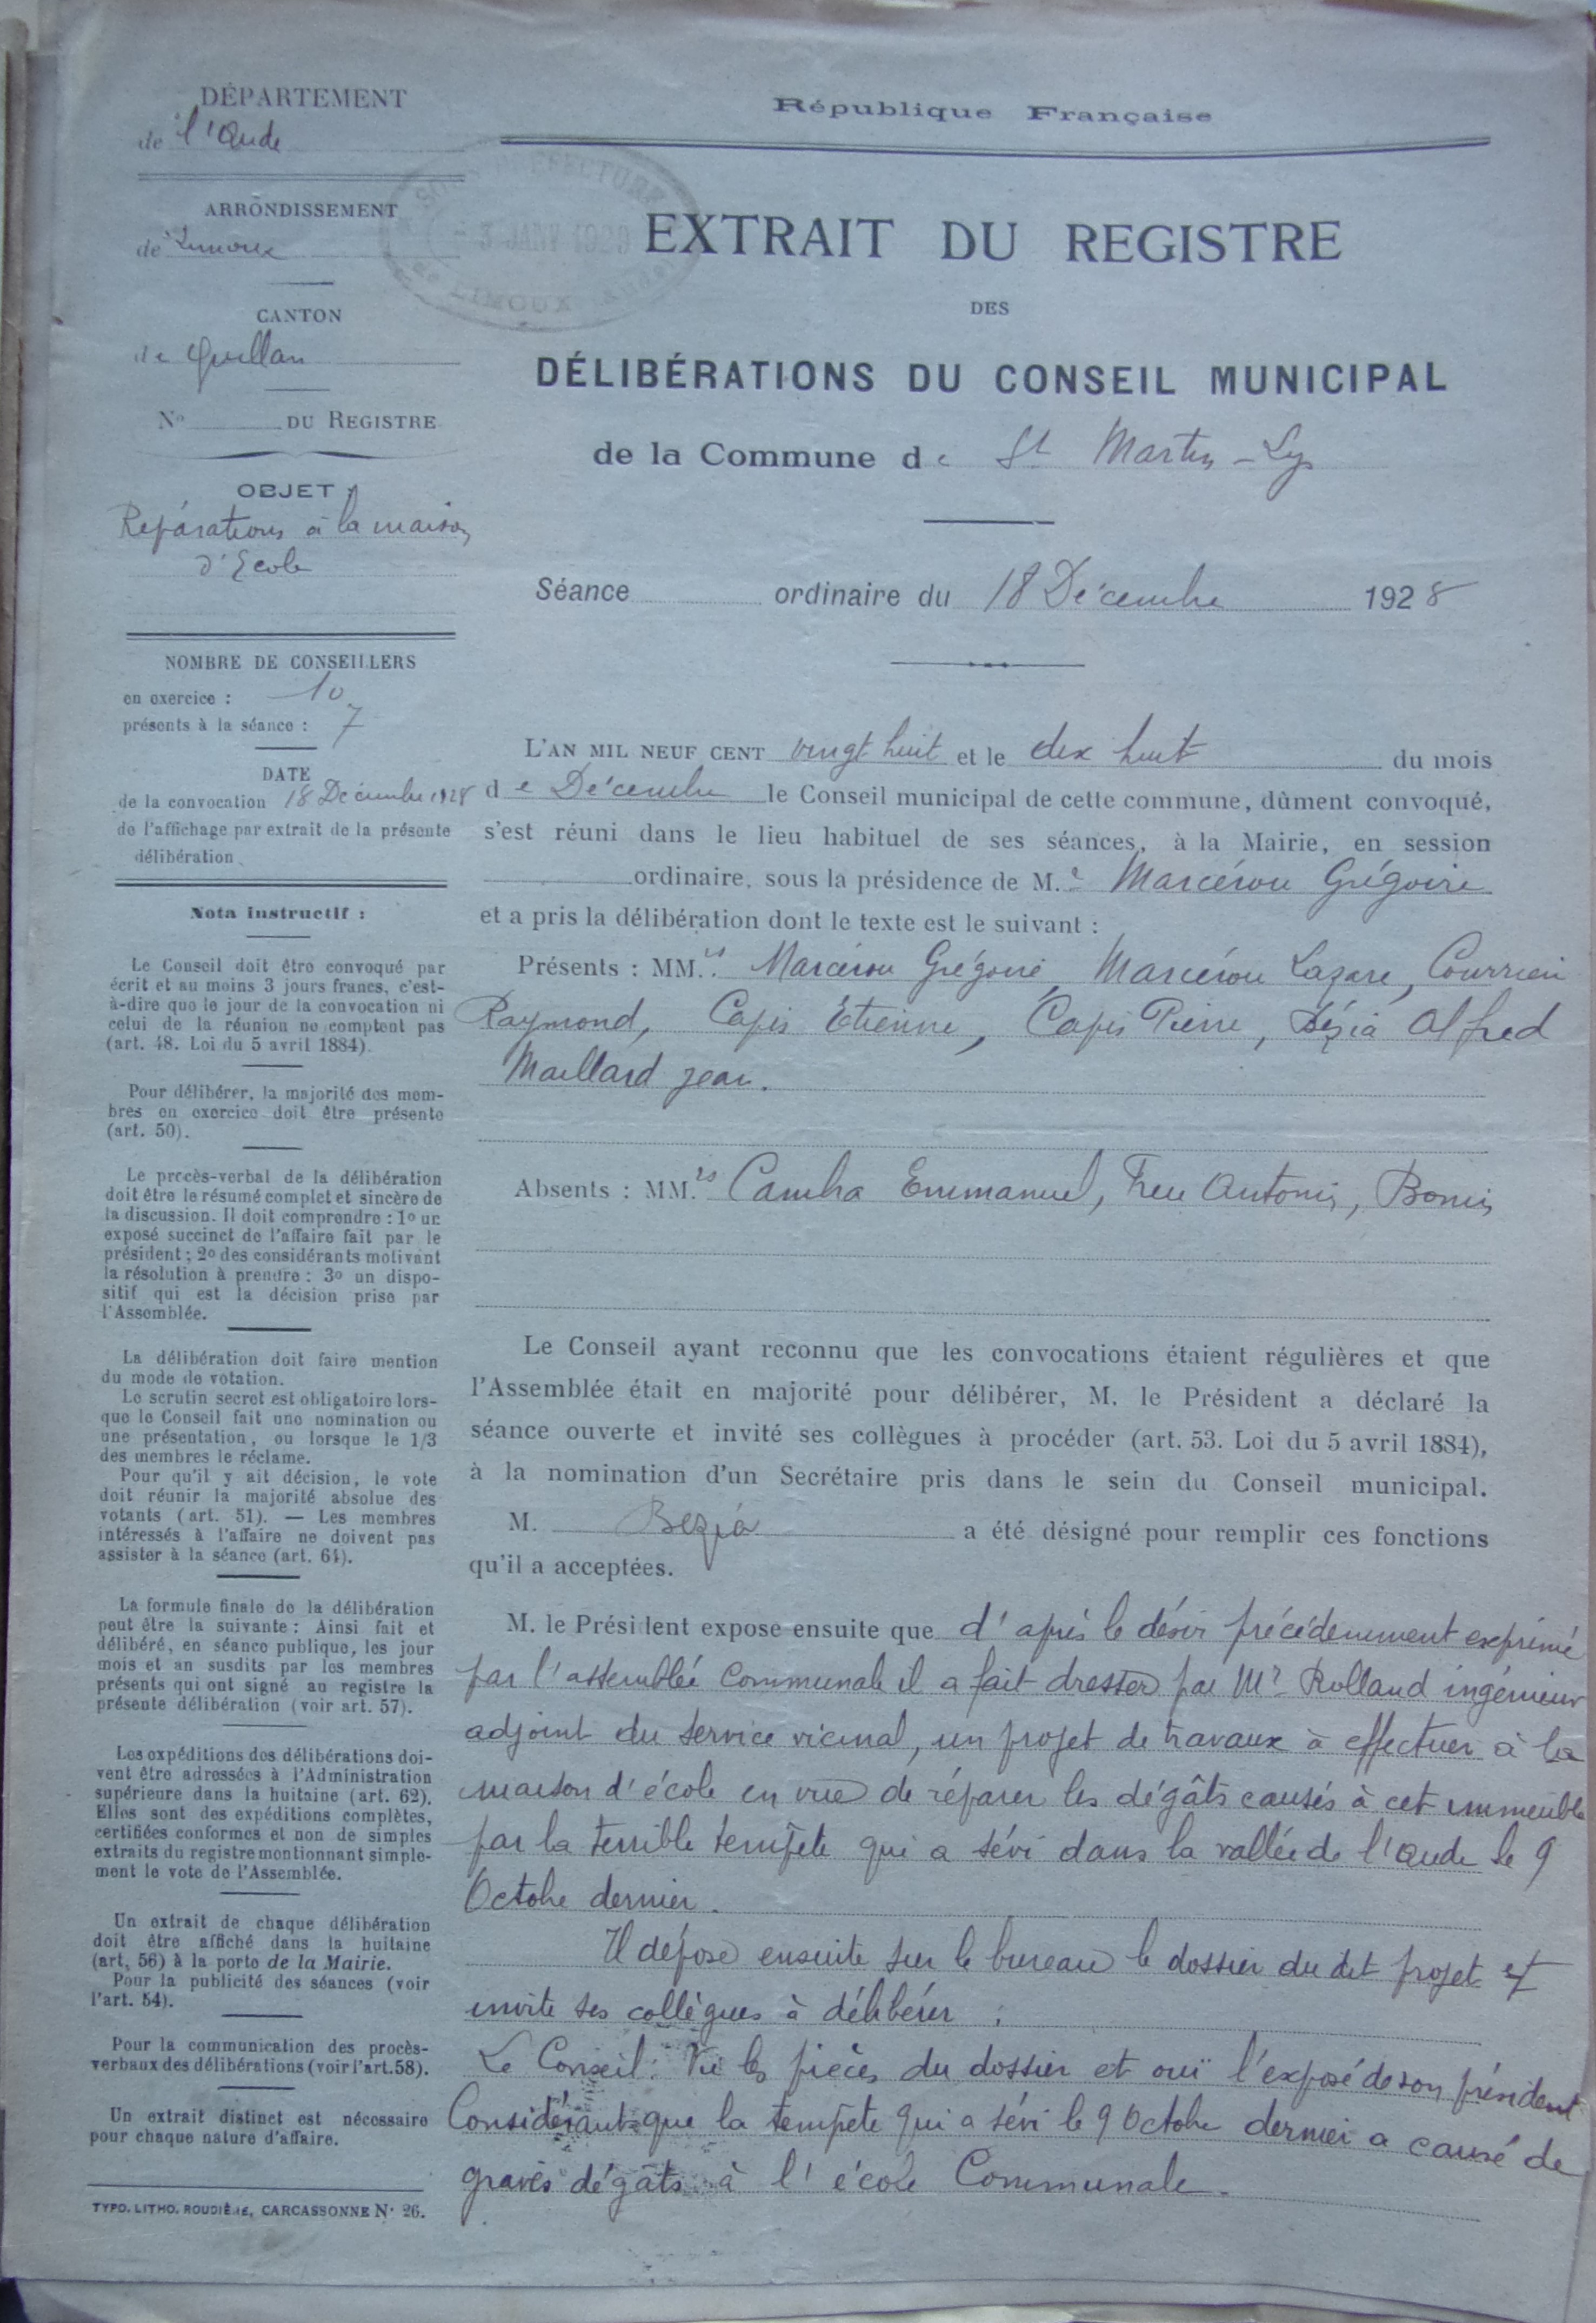 DÉPARTEMENT
de l'Aude
ARRONDISSEMENT
de Limoux
CANTON
de Quillan
N° DU REGISTRE
OBJET
Réparations à la maison
d'Ecole
NOMBRE DE CONSEILLERS
en exercice : 10
présents à la séance : 7
DATE
de la convocation 18 Décembre 1928
de l'affichage par extrait de la présente
délibération
Nota instructif :
Le Conseil doit être convoqué par
écrit et au moins 3 jours francs, c'est-
à-dire que le jour de la convocation ni
celui de la réunion ne comptent pas
(art. 48. Loi du 5 avril 1884).
Pour délibérer, la majorité des mem-
bres en exercice doit être présente
(art. 50).
Le procès-verbal de la délibération
doit être le résumé complet et sincère de
la discussion. Il doit comprendre : 1° un
exposé succinct de l'affaire fait par le
président ; 2° des considérants motivant
la résolution à prendre : 3° un dispo-
sitif qui est la décision prise par
l'Assemblée.
La délibération doit faire mention
du mode de votation.
Le scrutin secret est obligatoire lors-
que le Conseil fait une nomination ou
une présentation, ou lorsque le 1/3
des membres le réclame.
Pour qu'il y ait décision, le vote
doit réunir la majorité absolue des
votants (art. 51). — Les membres
intéressés à l'affaire ne doivent pas
assister à la séance (art. 64).
La formule finale de la délibération
peut être la suivante : Ainsi fait et
délibéré, en séance publique, les jour
mois et an susdits par les membres
présents qui ont signé au registre la
présente délibération (voir art. 57).
Les expéditions des délibérations doi-
vent être adressées à l'Administration
supérieure dans la huitaine (art. 62).
Elles sont des expéditions complètes,
certifiées conformes et non de simples
extraits du registre mentionnant simple-
ment le vote de l'Assemblée.
Un extrait de chaque délibération
doit être affiché dans la huitaine
(art. 56) à la porte de la Mairie.
Pour la publicité des séances (voir
l'art. 54).
Pour la communication des procès-
verbaux des délibérations (voir l'art. 58).
Un extrait distinct est nécessaire
pour chaque nature d'affaire.
TYPO. LITHO. ROUDIÈRE, CARCASSONNE N° 26.
SOUS PRÉFECTURE
JANV
de LIMOUX (Aude)
République Française
EXTRAIT DU REGISTRE
DES
DÉLIBÉRATIONS DU CONSEIL MUNICIPAL
de la Commune de St Martin-Lys
Séance ordinaire du 18 Décembre 1928
L'AN MIL NEUF CENT vingt huit et le dix huit du mois
de Décembre le Conseil municipal de cette commune, dûment convoqué,
s'est réuni dans le lieu habituel de ses séances, à la Mairie, en session
ordinaire, sous la présidence de M.r Marcérou Grégoire
et a pris la délibération dont le texte est le suivant :
Présents : MM.rs Marcérou Grégoire, Marcérou Lazare, Courrieu
Raymond, Capis Étienne, Capis Pierre, Bézia Alfred
Maillard Jean.
Absents : MM.rs Cambra Emmanuel, Treu Antonin, Bonis
Le Conseil ayant reconnu que les convocations étaient régulières et que
l'Assemblée était en majorité pour délibérer, M. le Président a déclaré la
séance ouverte et invité ses collègues à procéder (art. 53. Loi du 5 avril 1884),
à la nomination d'un Secrétaire pris dans le sein du Conseil municipal.
M. Bezia a été désigné pour remplir ces fonctions
qu'il a acceptées.
M. le Président expose ensuite que d'après le désir précédemment exprimé
par l'assemblée Communale il a fait dresser par Mr Rolland ingénieur
adjoint du service vicinal, un projet de travaux à effectuer à la
maison d'école en vue de réparer les dégâts causés à cet immeuble
par la terrible tempête qui a sévi dans la vallée de l'Aude le 9
Octobre dernier.
Il dépose ensuite sur le bureau le dossier du dit projet et
invite ses collègues à délibérer :
Le Conseil : Vu les pièces du dossier et ouï l'exposé de son président
Considérant que la tempete qui a sévi le 9 Octobre dernier a causé de
graves dégâts à l'école Communale.